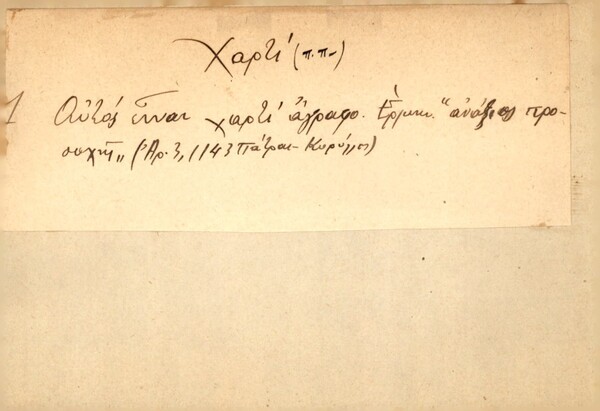 Χαρτί (π.π.)
1 Αὐτός εἶναι χαρτί ἄγραφο. Ἑρμην. "ἀνάξιος προ-
σοχῆς„ (Ἀρ. 3, 1143 Πάτραι-